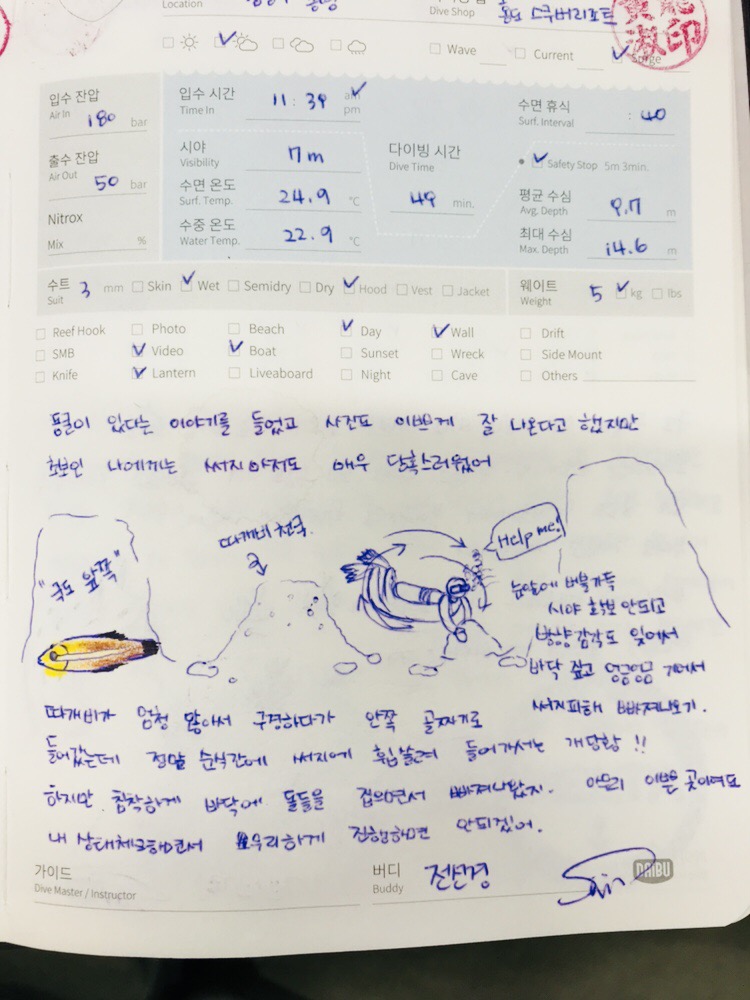 Location
Dive Shop 스쿠버리조트
Wave Current Surge
입수 잔압 Air In 180 bar
입수 시간 Time In 11 : 39 am pm
수면 휴식 Surf. Interval : 40
시야 Visibility 7 m
다이빙 시간 Dive Time 49 min.
Safety Stop 5m 3min.
출수 잔압 Air Out 50 bar
수면 온도 Surf. Temp. 24.9 °C
평균 수심 Avg. Depth 9.7 m
Nitrox Mix %
수중 온도 Water Temp. 22.9 °C
최대 수심 Max. Depth 14.6 m
수트 Suit 3 mm Skin Wet Semidry Dry Hood Vest Jacket
웨이트 Weight 5 kg lbs
Reef Hook Photo Beach Day Wall Drift
SMB Video Boat Sunset Wreck Side Mount
Knife Lantern Liveaboard Night Cave Others
동굴이 있다는 이야기를 들었고 사진도 이쁘게 잘 나온다고 했지만
초보인 나에게는 써지마저도 매우 당혹스러웠어
"국도 앞쪽"
따개비 천국
Help me!
눈앞에 버블가득
시야 확보 안되고
방향감각도 잊어서
바닥 잡고 엉금엉금 기어서
써지피해 빠져나오기.
따개비가 엄청 많아서 구경하다가 안쪽 골짜기로
들어갔는데 정말 순식간에 써지에 휩쓸려 들어가서는 개당황 !!
하지만 침착하게 바닥에 돌들을 집으면서 빠져나왔지. 아무리 이쁜 곳이여도
내 상태체크하면서 무리하게 진행하면 안되겠어.
가이드 Dive Master / Instructor
버디 Buddy
DAIBU